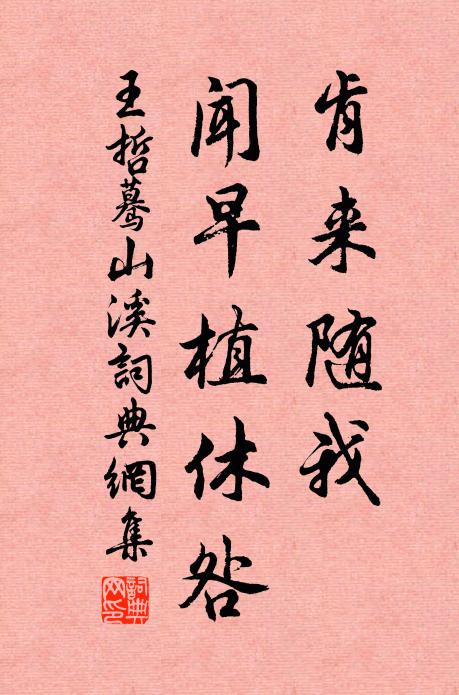 肯来随我
闻早植休咎
王哲蓦山溪詞典網集
詞典网印